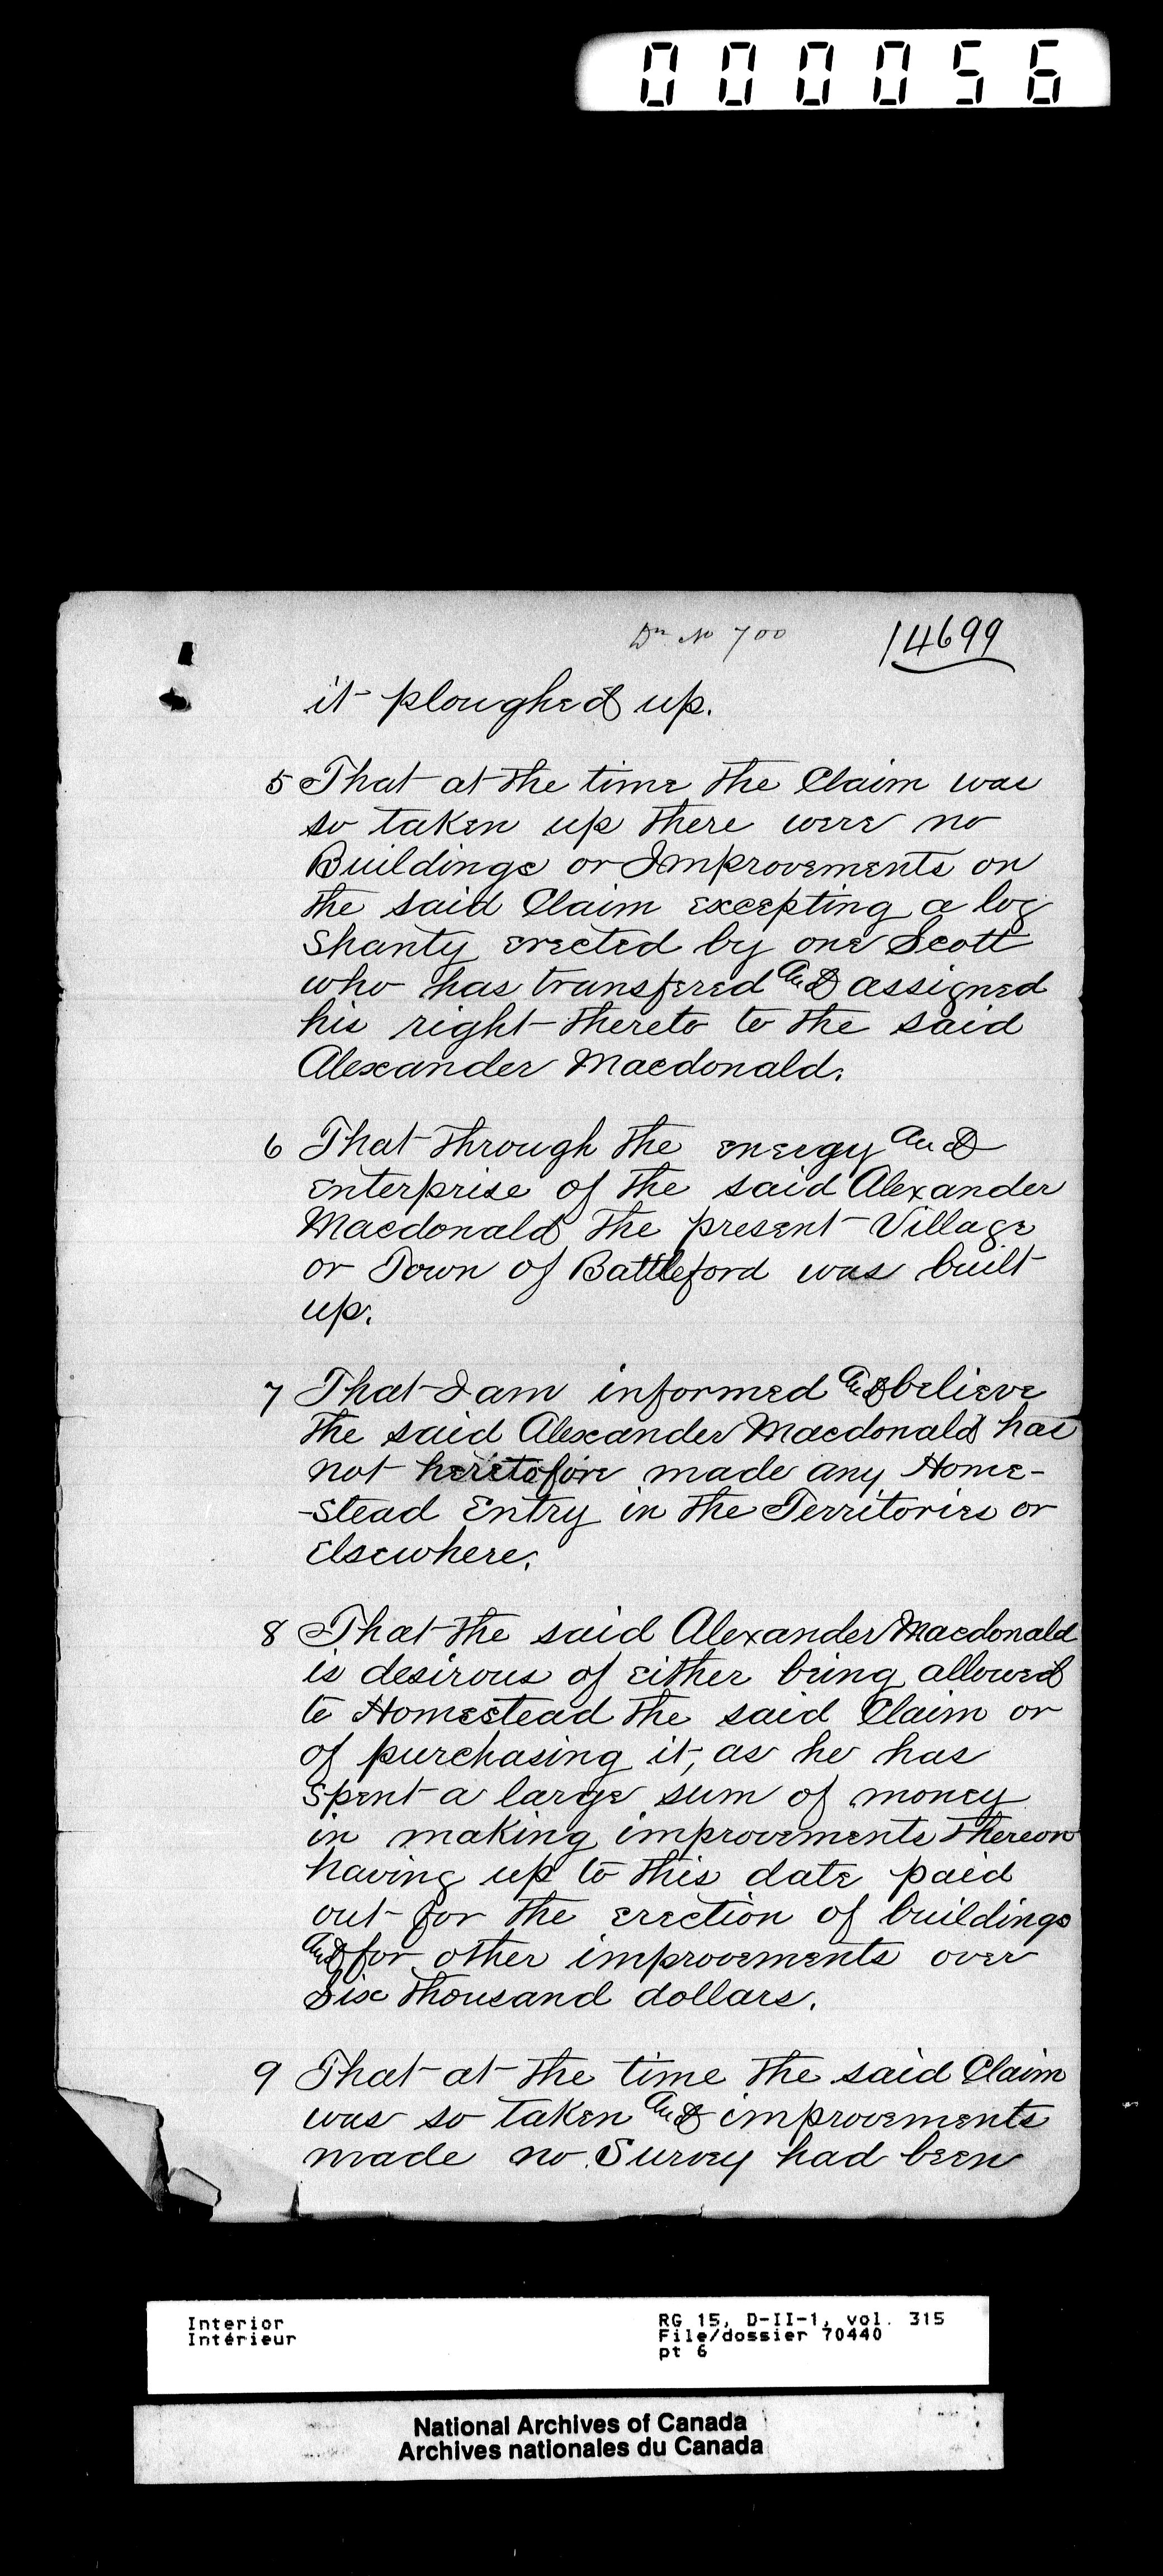 000056
Dn No 700
14699
it ploughed up.
5 That at the time the Claim was
so taken up there were no
Buildings or Improvements on
the said Claim excepting a log
Shanty erected by one Scott
who has transfered and assigned
his right thereto to the said
Alexander Macdonald.
6 That through the energy and
enterprise of the said Alexander
Macdonald the present Village
or Town of Battleford was built
up.
7 That I am informed and believe
the said Alexander Macdonald has
not heretofore made any Home-
-stead Entry in the Territories or
Elsewhere.
8 That the said Alexander Macdonald
is desirous of either being allowed
to Homestead the said Claim or
of purchasing it, as he has
spent a large sum of money
in making improvements thereon
having up to this date paid
out for the erection of buildings
and for other improvements over
Six thousand dollars.
9 That at the time the said Claim
was so taken and improvements
made no Survey had been
Interior
Intérieur
RG 15, D-II-1, vol. 315
File/dossier 70440
pt 6
National Archives of Canada
Archives nationales du Canada